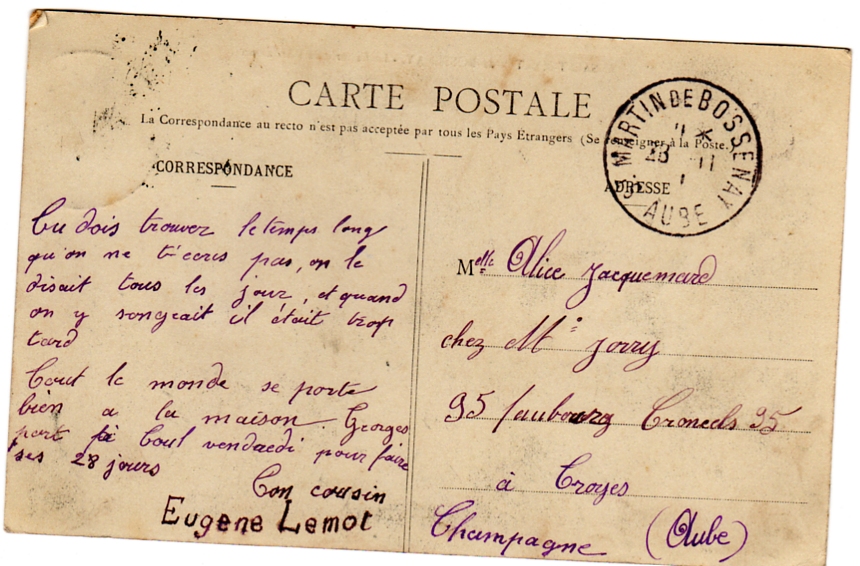 CARTE POSTALE
La Correspondance au recto n'est pas acceptée par tous les Pays Etrangers (Se renseigner à la Poste.)
CORRESPONDANCE
ADRESSE
St MARTIN DE BOSSENAY
28 11
AUBE
Tu dois trouver le temps long
qu'on ne t'écris pas, on le
disait tous les jour, et quand
on y songeait il était trop
tard
Tout le monde se porte
bien a la maison. Georges
part vendaedi pour faire
ses 28 jours
Ton cousin
Eugene Lemot
Melle Alice Jacquemard
chez Mr Jorry
95 faubourg Croncels 95
à Troyes
Champagne (Aube)